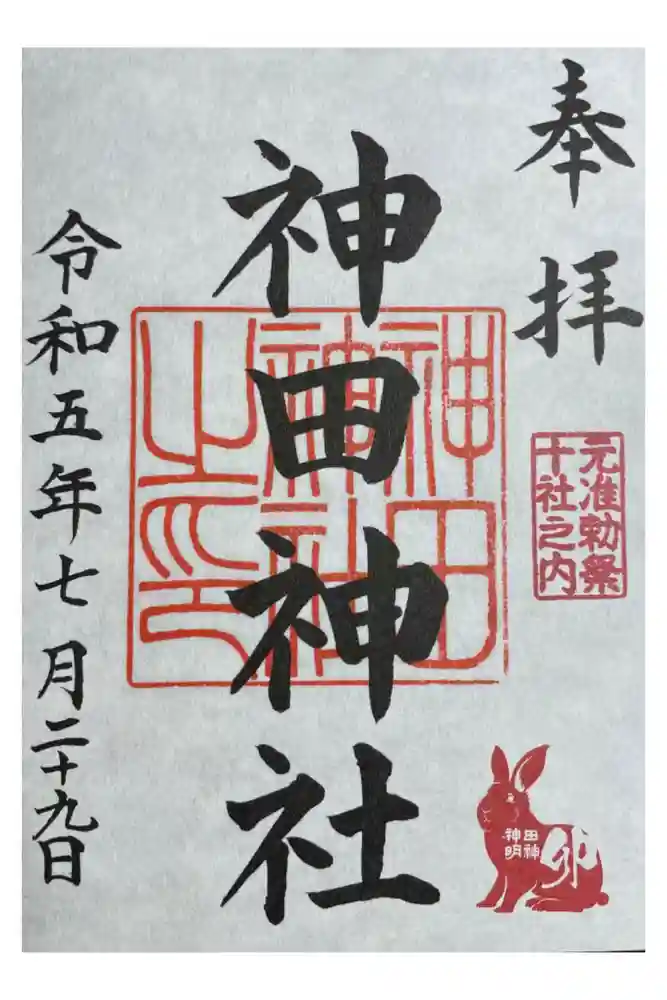 奉拝
元准勅祭
十社之内
神田
明神
卯
神田神社
神田
神社
之印
令和五年七月二十九日